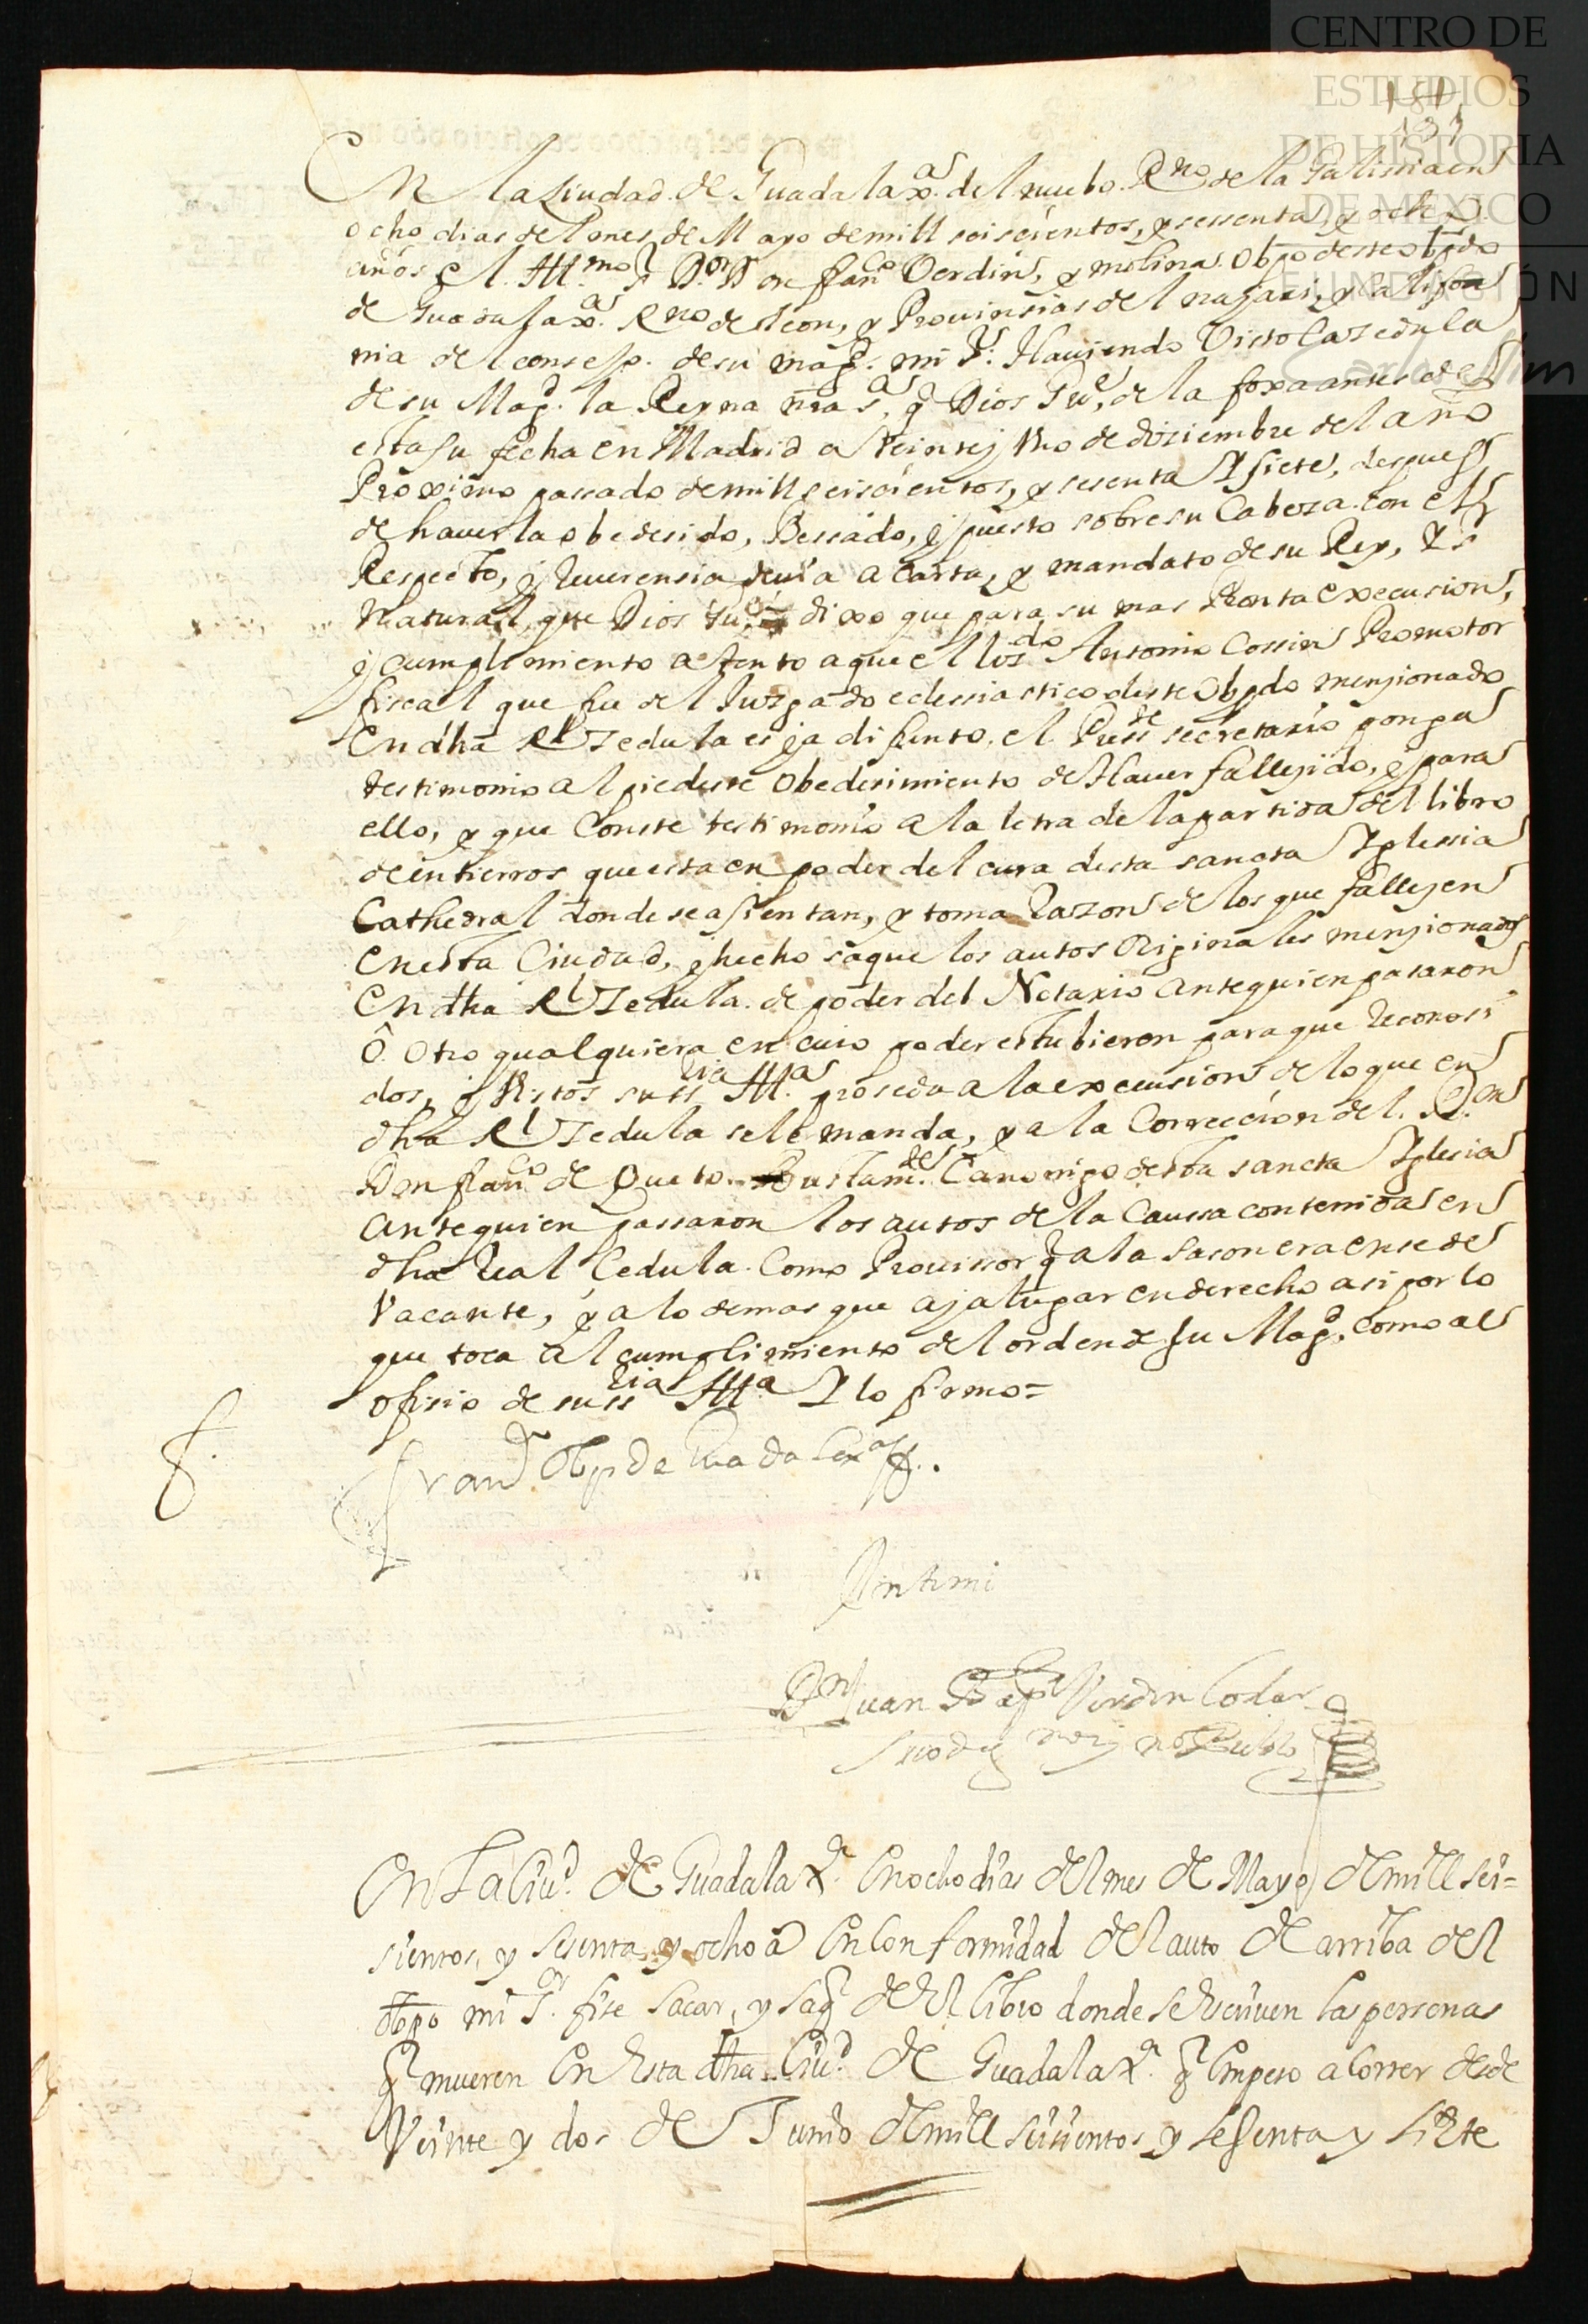 CENTRO DE
ESTUDIOS
DE HISTORIA
DE MÉXICO
FUNDACIÓN
Carlos Slim
En la Ziudad de Guadalaxa. del nuebo Rno de la Galissia en
ocho dias del mes de Mayo de mill seiscientos, y sessenta, y ocho
años El Illmo Sr Dor Don franco Verdin, y molina Obpo deste obpdo
de Guadalaxa. Rno de leon, y Prouinsias del nayari, y califor
nia del consejo de su magd. mi Sr. Hauiendo Visto la zedula
de su Magd. la Reyna nra sa, q Dios Gue, de la foxa antes de
esta su fecha en Madrid a Veintej Vno de diziembre del año
Proximo passado de mill seiscientos, y sesenta Y siete, despues
de hauerla obedesido, Bessado, ÿ puesto sobre su Cabeza con el
Respecto, ÿ Reuerensia deuia a Carta, y mandato de su Rey, Y sr
Natural, que Dios gue, dixo que para su mas Pronta execusion,
ÿ cumplimiento atento a que el lizdo Antonio Cossin Promotor
fiscal que fue del Juzgado eclessiastico deste Obpdo menzionado
En dha Rl Zedula es ya difunto, el Pressте secretario ponga
testimonio al pie deste obedesimiento de Hauer fallezido, ÿ para
ello, y que Conste testimonio a la letra de la partida del libro
de entierros que esta en poder del cura desta sancta Yglessia
Cathedral donde se asientan, y toma Razon de los que fallezen
En esta Ciudad, ÿ hecho saque los autos Originales menzionados
En dha Rl Zedula de poder del Notario ante quien pasaron
Ô Otro qualquiera en cuio poder estubieron para que Reconosi
dos, ÿ Vistos su ssria Illa. proseda a la execusion de lo que en
dha Rl Zedula se le manda, y a la Correccion del Dor
Don franco de Queto Bustamte. Canonigo desta sancta Yglesia
Ante quien passaron los autos de la Caussa contenida en
dha Real Cedula. Como Prouissor q a la sason era en sede
Vacante, y a lo demas que aja lugar en derecho asi por lo
que toca al cumplimiento del orden de su Magd, como al
ofisio de su ssria Illa Y lo firmo=
Franco Obpo de Guadalaxa
Ante mi
Dn Juan Bapta Verdin
sno noty Pubco
En La Ciud. de Guadalaxa. En ocho dias del mes de Mayo de mill sei=
sientos, y sesenta y ocho as En Conformidad del auto de arriba del
Obpo mi Sr. fise Sacar, y saq del el libro donde se Escriuen las personas
q mueren En Esta dha Ciud. de Guadalaxa. q Empeso a Correr desde
Veinte y dos de Junio de mill seisientos y sesenta y siete